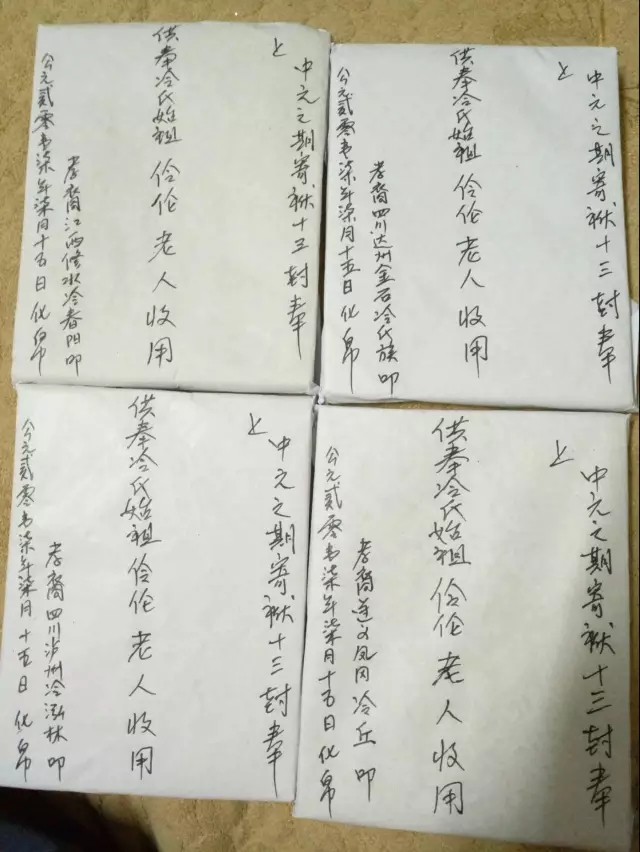 中元之期寄袱十三封奉
上
供奉冷氏始祖 伶伦 老人收用
孝裔江西修水冷春阳叩
公元贰零壹柒年柒月十五日 化帛
中元之期寄袱十三封奉
上
供奉冷氏始祖 伶伦 老人收用
孝裔四川达州金石冷氏族叩
公元贰零壹柒年柒月十五日 化帛
中元之期寄袱十三封奉
上
供奉冷氏始祖 伶伦 老人收用
孝裔四川泸州冷泓林叩
公元贰零壹柒年柒月十五日 化帛
中元之期寄袱十三封奉
上
供奉冷氏始祖 伶伦 老人收用
孝裔遵义凤冈冷丘叩
公元贰零壹柒年柒月十五日 化帛